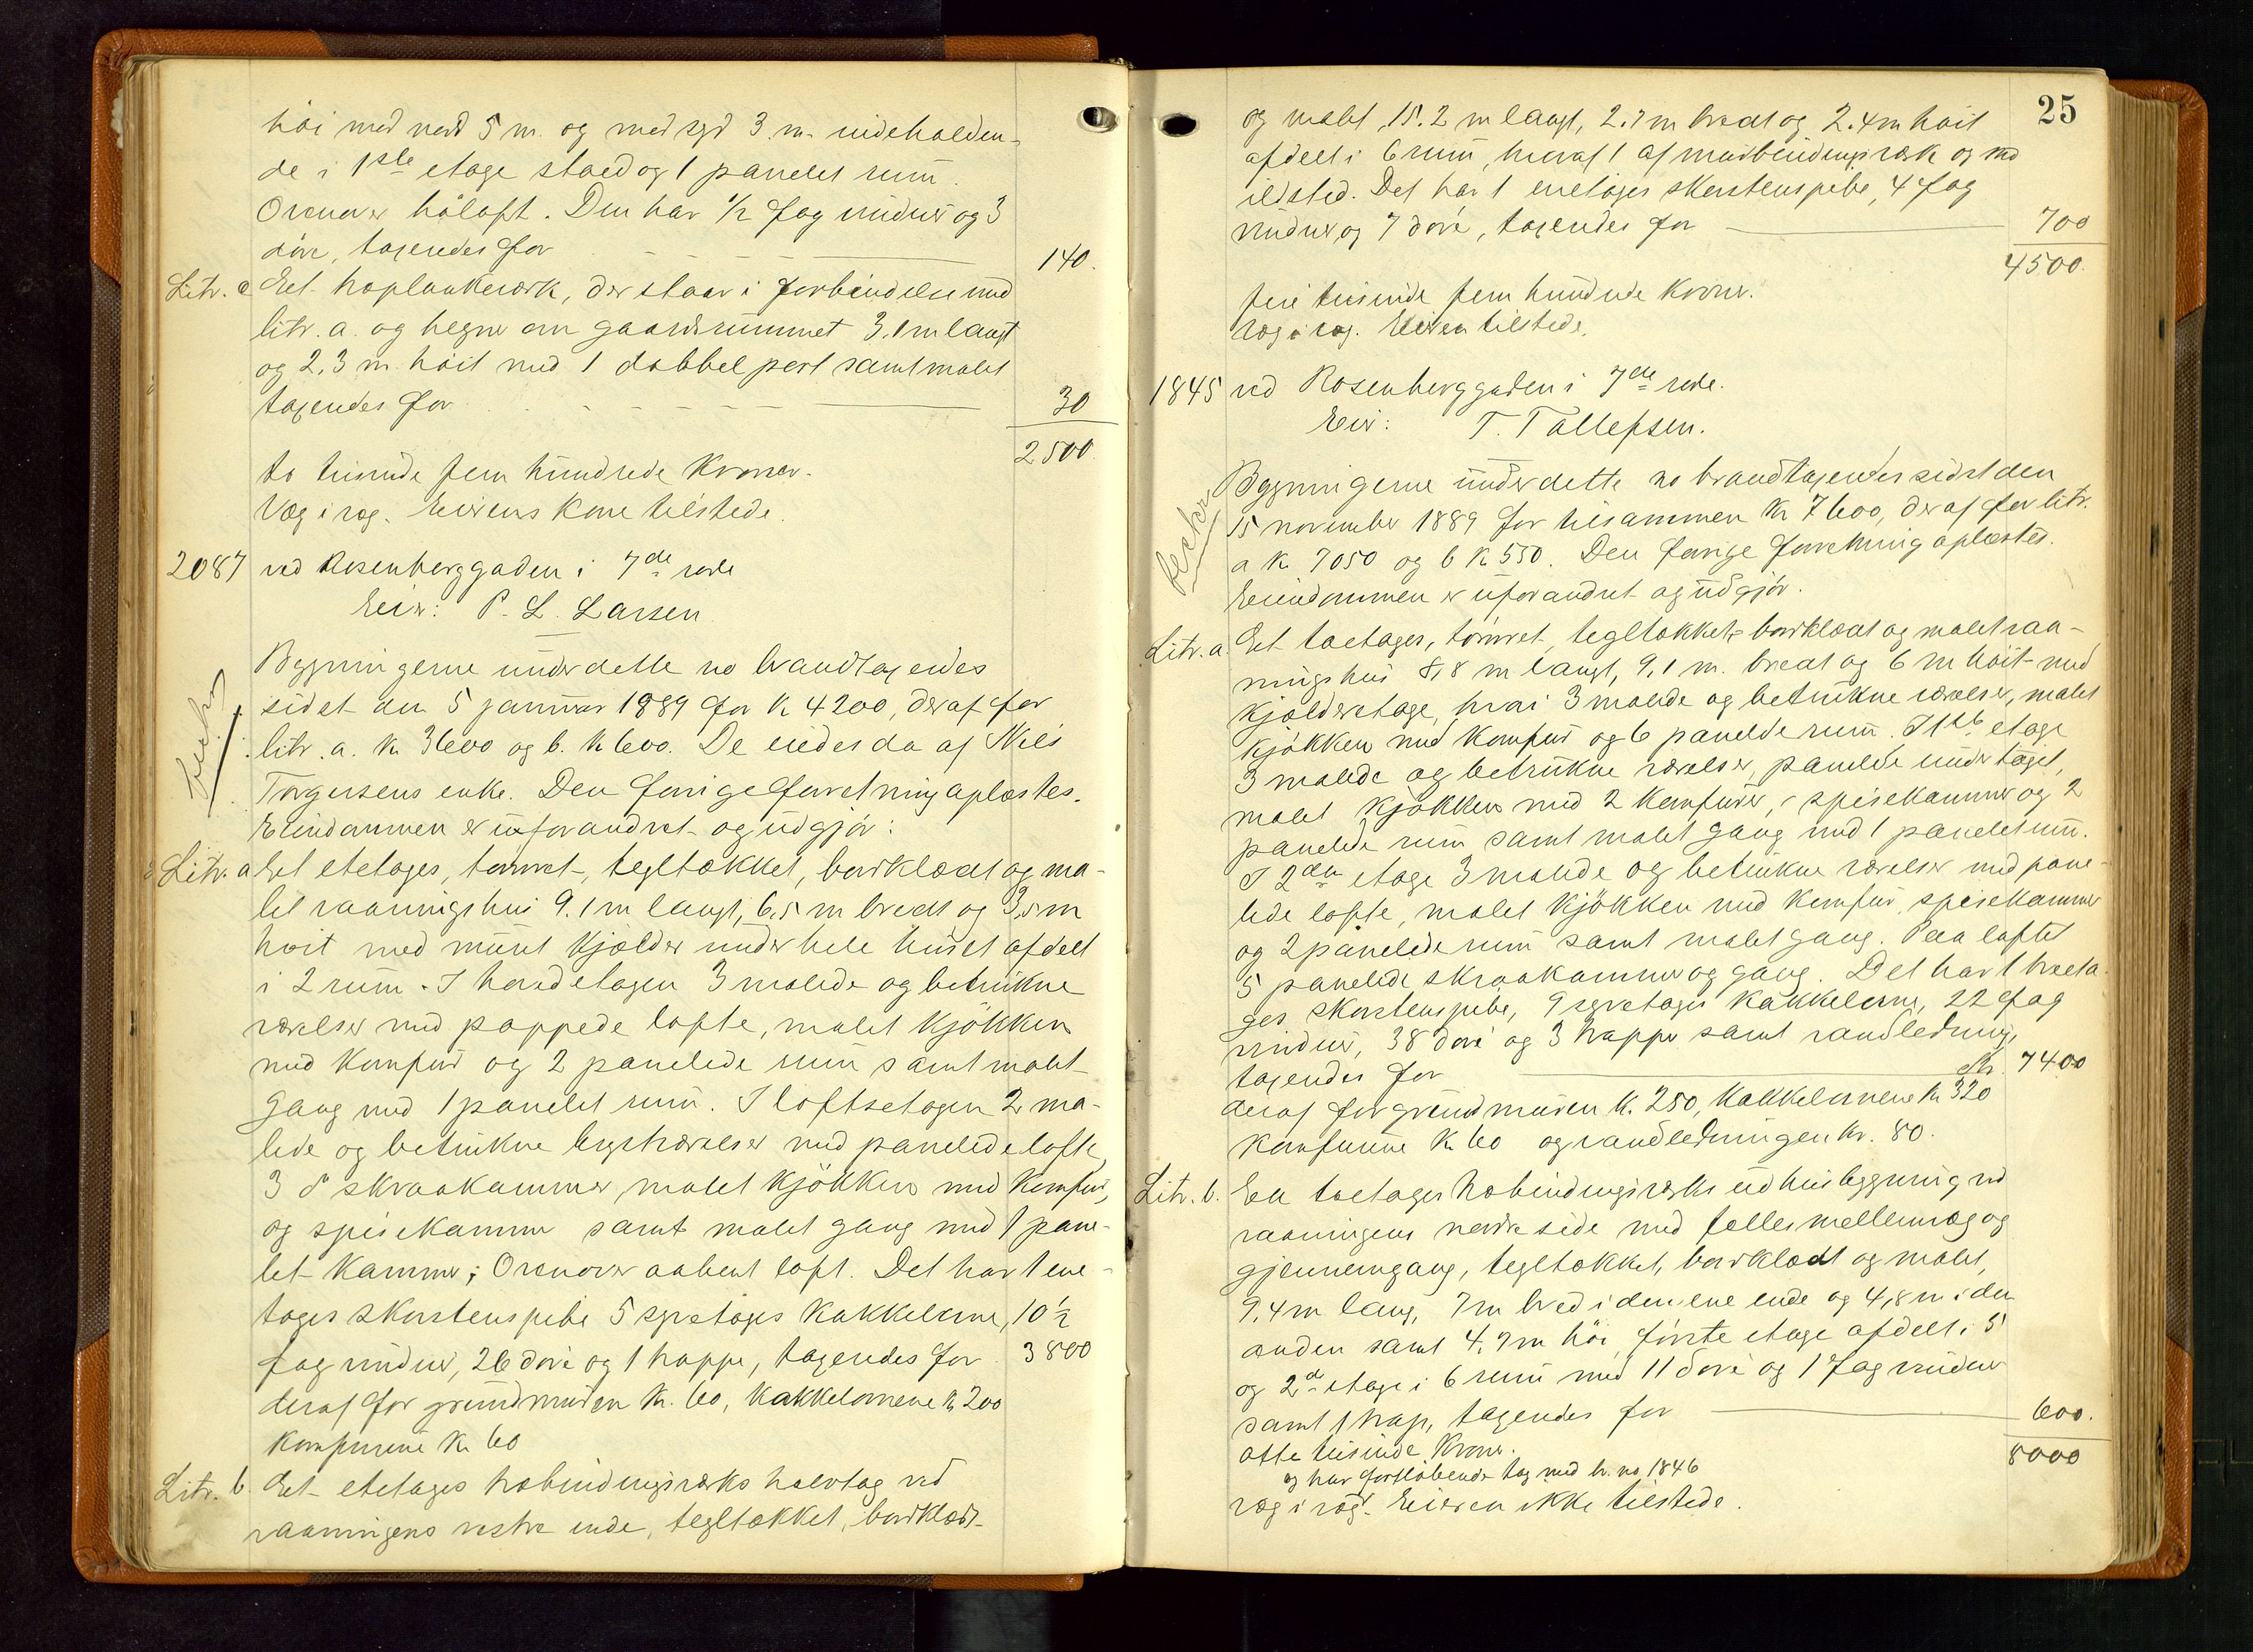 høi mod nord 5 m. og mod syd 3 m. indeholden-
de i 1ste etage stald og 1 panelet rum.
Ovenover høloft. Den har 1/2 fag vinduer og 3
døre, taxeredes for 140.
Litr. c Et haplankeværk, der staar i forbindelse med
litr. a. og hegner om gaardsrummet 3.1 m langt
og 2.3 m. høit med 1 dobbel port samt malet
taxeredes for 30
2500.
to tusinde fem hundrede Kroner.
Væg i væg. Eierens Kone tilstede.
2087 ved Rosenberggaden i 7de rode
Eier: P. L. Larsen
Bygningerne under dette no brandtaxeredes
sidst den 5 januar 1889 for K 4200, deraf for
litr. a. K 3600 og b. K 600. De eiedes da af Nils
Torgersens enke. Den forrige forretning oplæstes.
Eiendommen er uforandret og udgjør:
Litr. a Et etetages, tømret, tegltækket, bordklædt og ma-
let vaaningshus 9.1 m langt, 6,5 m bredt og 3,5 m
høit med muret Kjælder under hele huset afdelt
i 2 rum. I hovedetagen 3 malede og betrukne
værelser med pappede lofte, malet Kjøkken
med Komfur og 2 panelede rum samt malet
gang med 1 panelet rum. I loftsetagen 2 ma-
lede og betrukne kvistværelser med panelede lofte,
3 d° skraakammer, malet Kjøkken med Komfur,
og spisekammer samt malet gang med 1 pane-
let Kammer; Ovenover aabent loft. Det har 1 ene-
tages skorstenspibe 5 syvetages Kakkelovne, 10 1/2
fag vinduer, 26 døre og 1 trappe, taxeredes for 3800
deraf for grundmuren K. 60, Kakkelovnene K 200
Komfurene K 60
Litr. b. Et etetages habindingsværks halvtag ved
vaaningens vestre ende, tegltækket, bordklædt
25
og malet, 15.2 m langt, 2.7 m bredt og 2.4 m høit
afdelt i 6 rum, hvoraf 1 af murbindingsværk og med
ildsted. Det har 1 enetages skorstenspibe, 4 fag
vinduer og 7 døre, taxeredes for 700
4500.
fire tusinde fem hundrede Kroner.
Væg i væg. Eieren tilstede.
1845 ved Rosenberggaden i 7de rode.
Eier: T. Tallefsen.
Bygningerne under dette no brandtaxeredes sidst den
15 november 1889 for tilsammen K 7600, deraf for litr.
a K 7050 og b K 550. Den forrige forretning oplæstes.
Eiendommen er uforandret og udgjør.
Litr. a. Et toetages, tømret, tegltækket, bordklædt og malet vaa-
ningshus 8,8 m langt, 9,1 m. bredt og 6 m høit med
Kjælderetage, hvori 3 malede og betrukne værelser, malet
Kjøkken med Komfur og 6 panelede rum. I 1ste etage
3 malede og betrukne værelser, panelede under taget,
malet Kjøkken med 2 Komfurer, spisekammer og 2
panelede rum samt malet gang med 1 panelet rum.
I 2den etage 3 malede og betrukne værelser med pane-
lede lofte, malet Kjøkken med Komfur, spisekammer
og 2 panelede rum samt malet gang. Paa loftet
5 panelede skraakammer og gang. Det har 1 treeta-
ges skorstenspibe, 9 syvetages Kakkelovne, 22 fag
vinduer, 38 døre og 3 trapper samt vandledning,
taxeredes for Kr. 7400
deraf for grundmuren K. 250, Kakkelovnene K 320
Komfurene K 60 og vandledningen Kr. 80.
Litr. b. En toetages habindingsværks udhusbygning ved
vaaningens nordre side med fælles mellemvæg og
gjennemgang, tegltækket, bordklædt og malet,
9,4 m lang, 7 m bred i den ene ende og 4,8 m i den
anden samt 4.9 m høi, første etage afdelt i 5
og 2de etage i 6 rum med 11 døre og 1 fag vinduer
samt 1 trap, taxeredes for 600.
otte tusinde Kroner. 8000
og har fortløbende tag med br. no 1846
væg i væg. Eieren ikke tilstede.